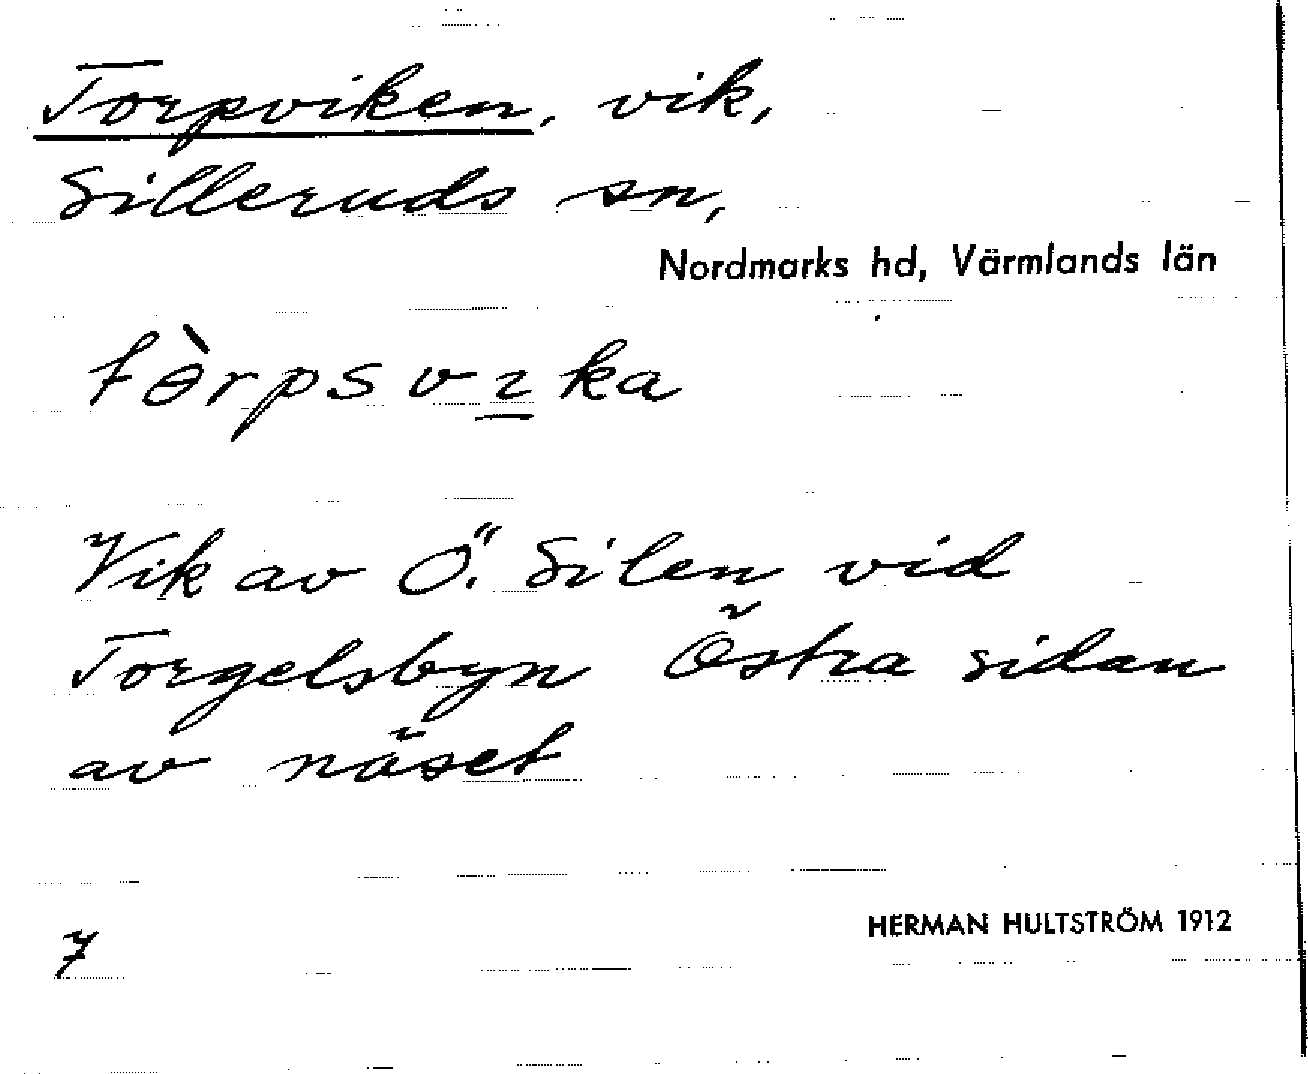 Torpviken, vik,
Silleruds sn,
Nordmarks hd, Värmlands län
tɵ̀rpsvɩ̲ka
Vik av Ö. Silen vid
Torgelsbyn Östra sidan
av näset
HERMAN HULTSTRÖM 1912
7